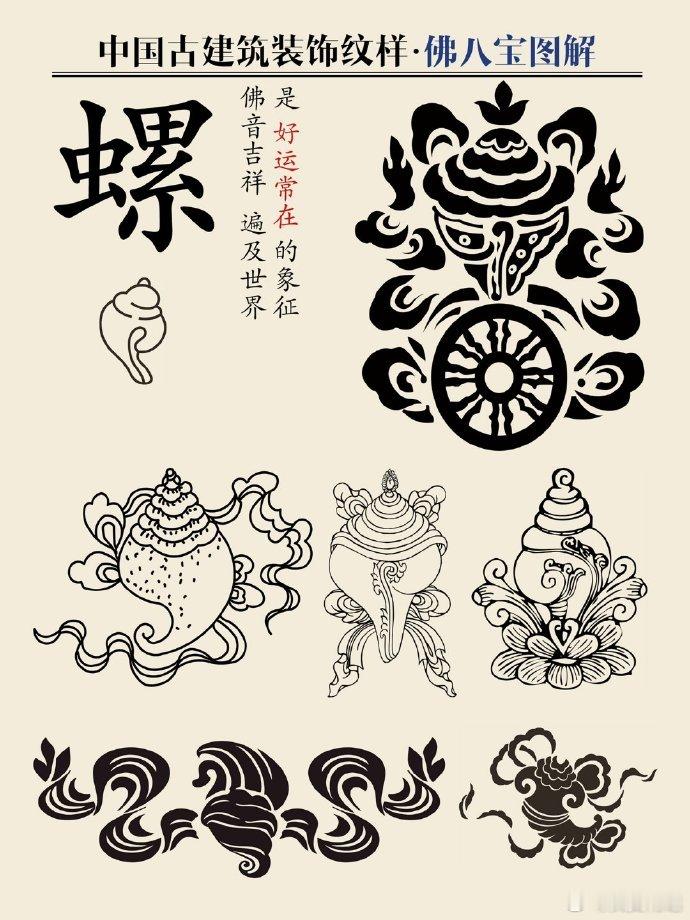 中国古建筑装饰纹样·佛八宝图解
螺
是 好运常在 的象征
佛音吉祥 遍及世界